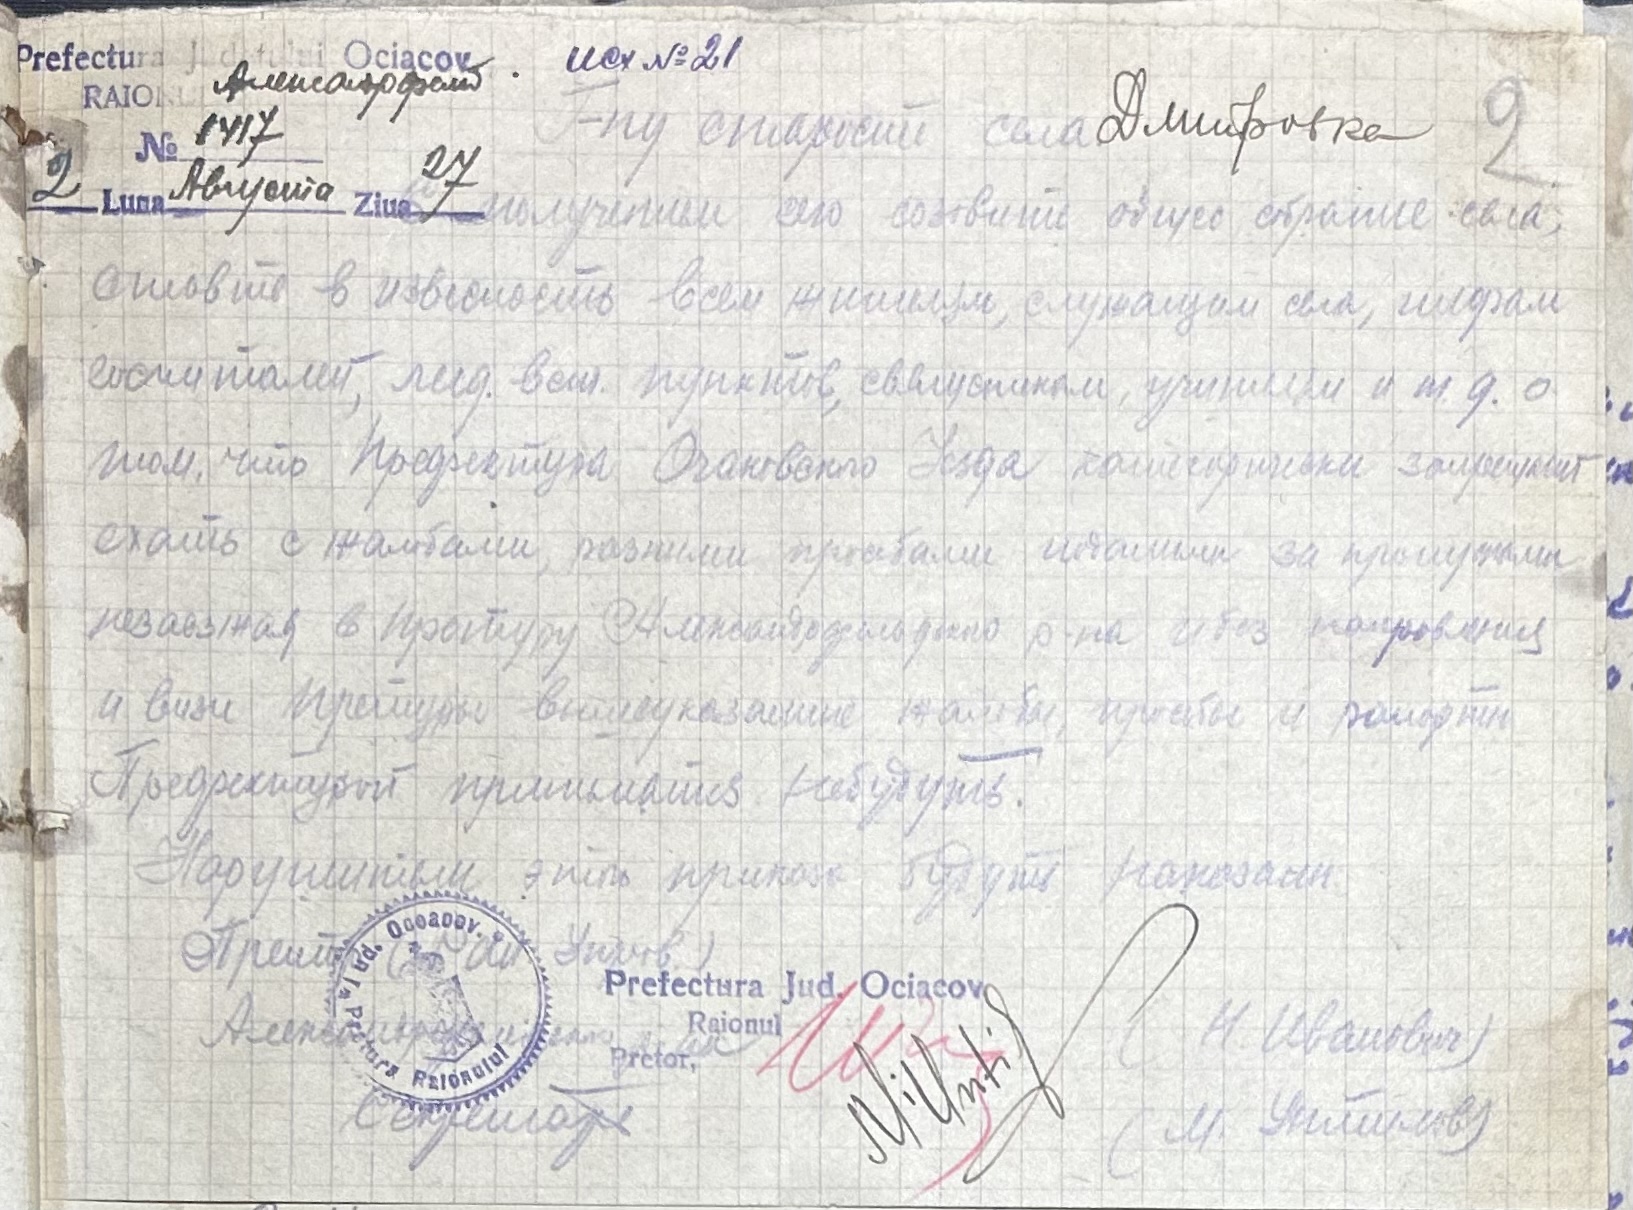 Prefectura Judetului Ociacov
исх №21
RAIONUL Александрфельд
№ 1417
2 Luna Августа Ziua 27
Г-ну старости села Дмитровка
2
получении сего созовите общее обрание села,
ставте в известность всем жителям, служащим села, шефам
госпиталей, мед. всп. пунктов, священикам, учителям и т. д. о
том, что Префектура Очаковского Уезда категорически запрещает
ехать с жалобами, разними прозбами за пропусками
незаезжая в Претуру Александрфельдского р-на и без направления
и визи Претуры вышеуказание жалобы, прозбы и рапорти
Префектурой приниматся небудуть.
Нарушители этого приказа будуть наказани.
Претор
Александрфельдского р-на
Секретарь
Jud. Oceacov. Pretura Raionului
Prefectura Jud. Ociacov
Raionul
Pretor,
( Н. Иванович)
( М. )